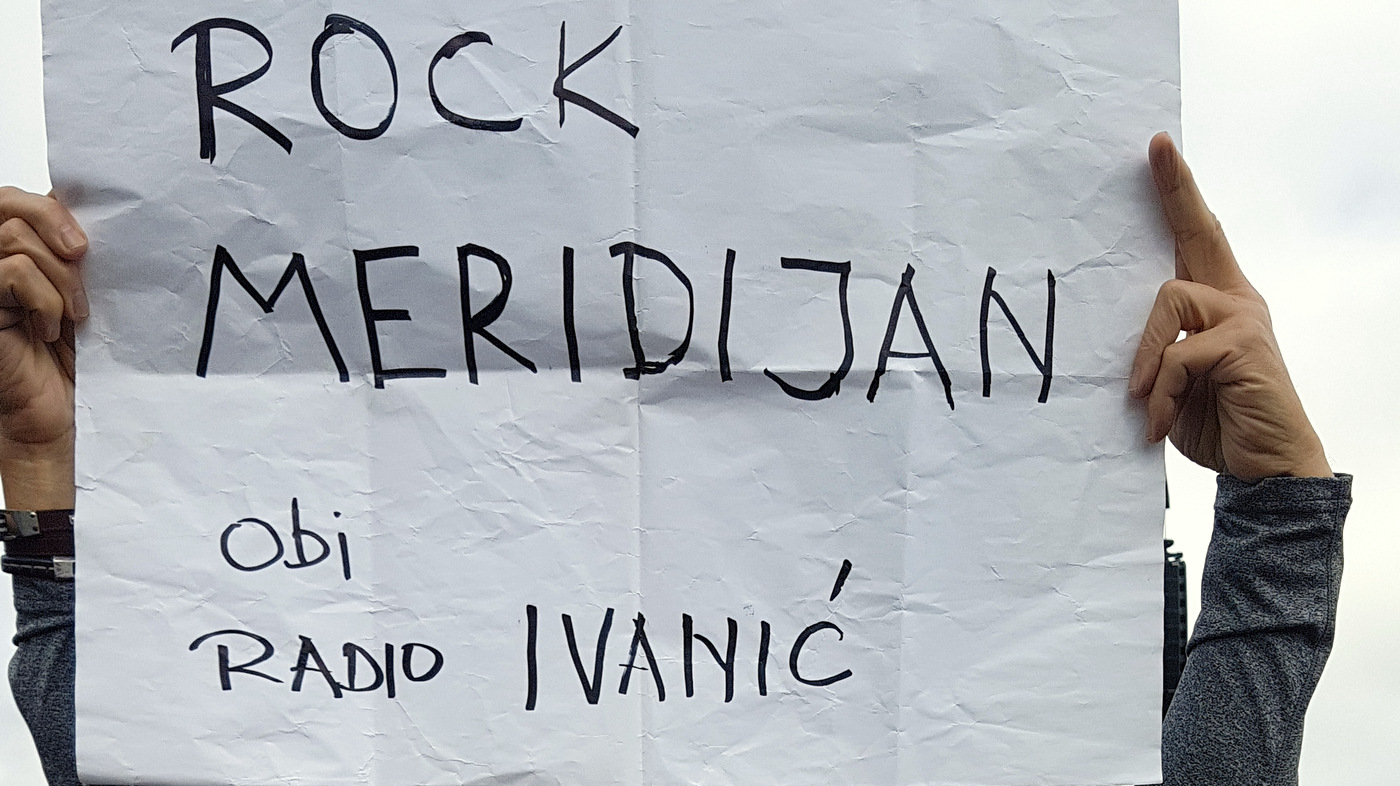 ROCK
MERIDIJAN
Obi
RADIO IVANIĆ